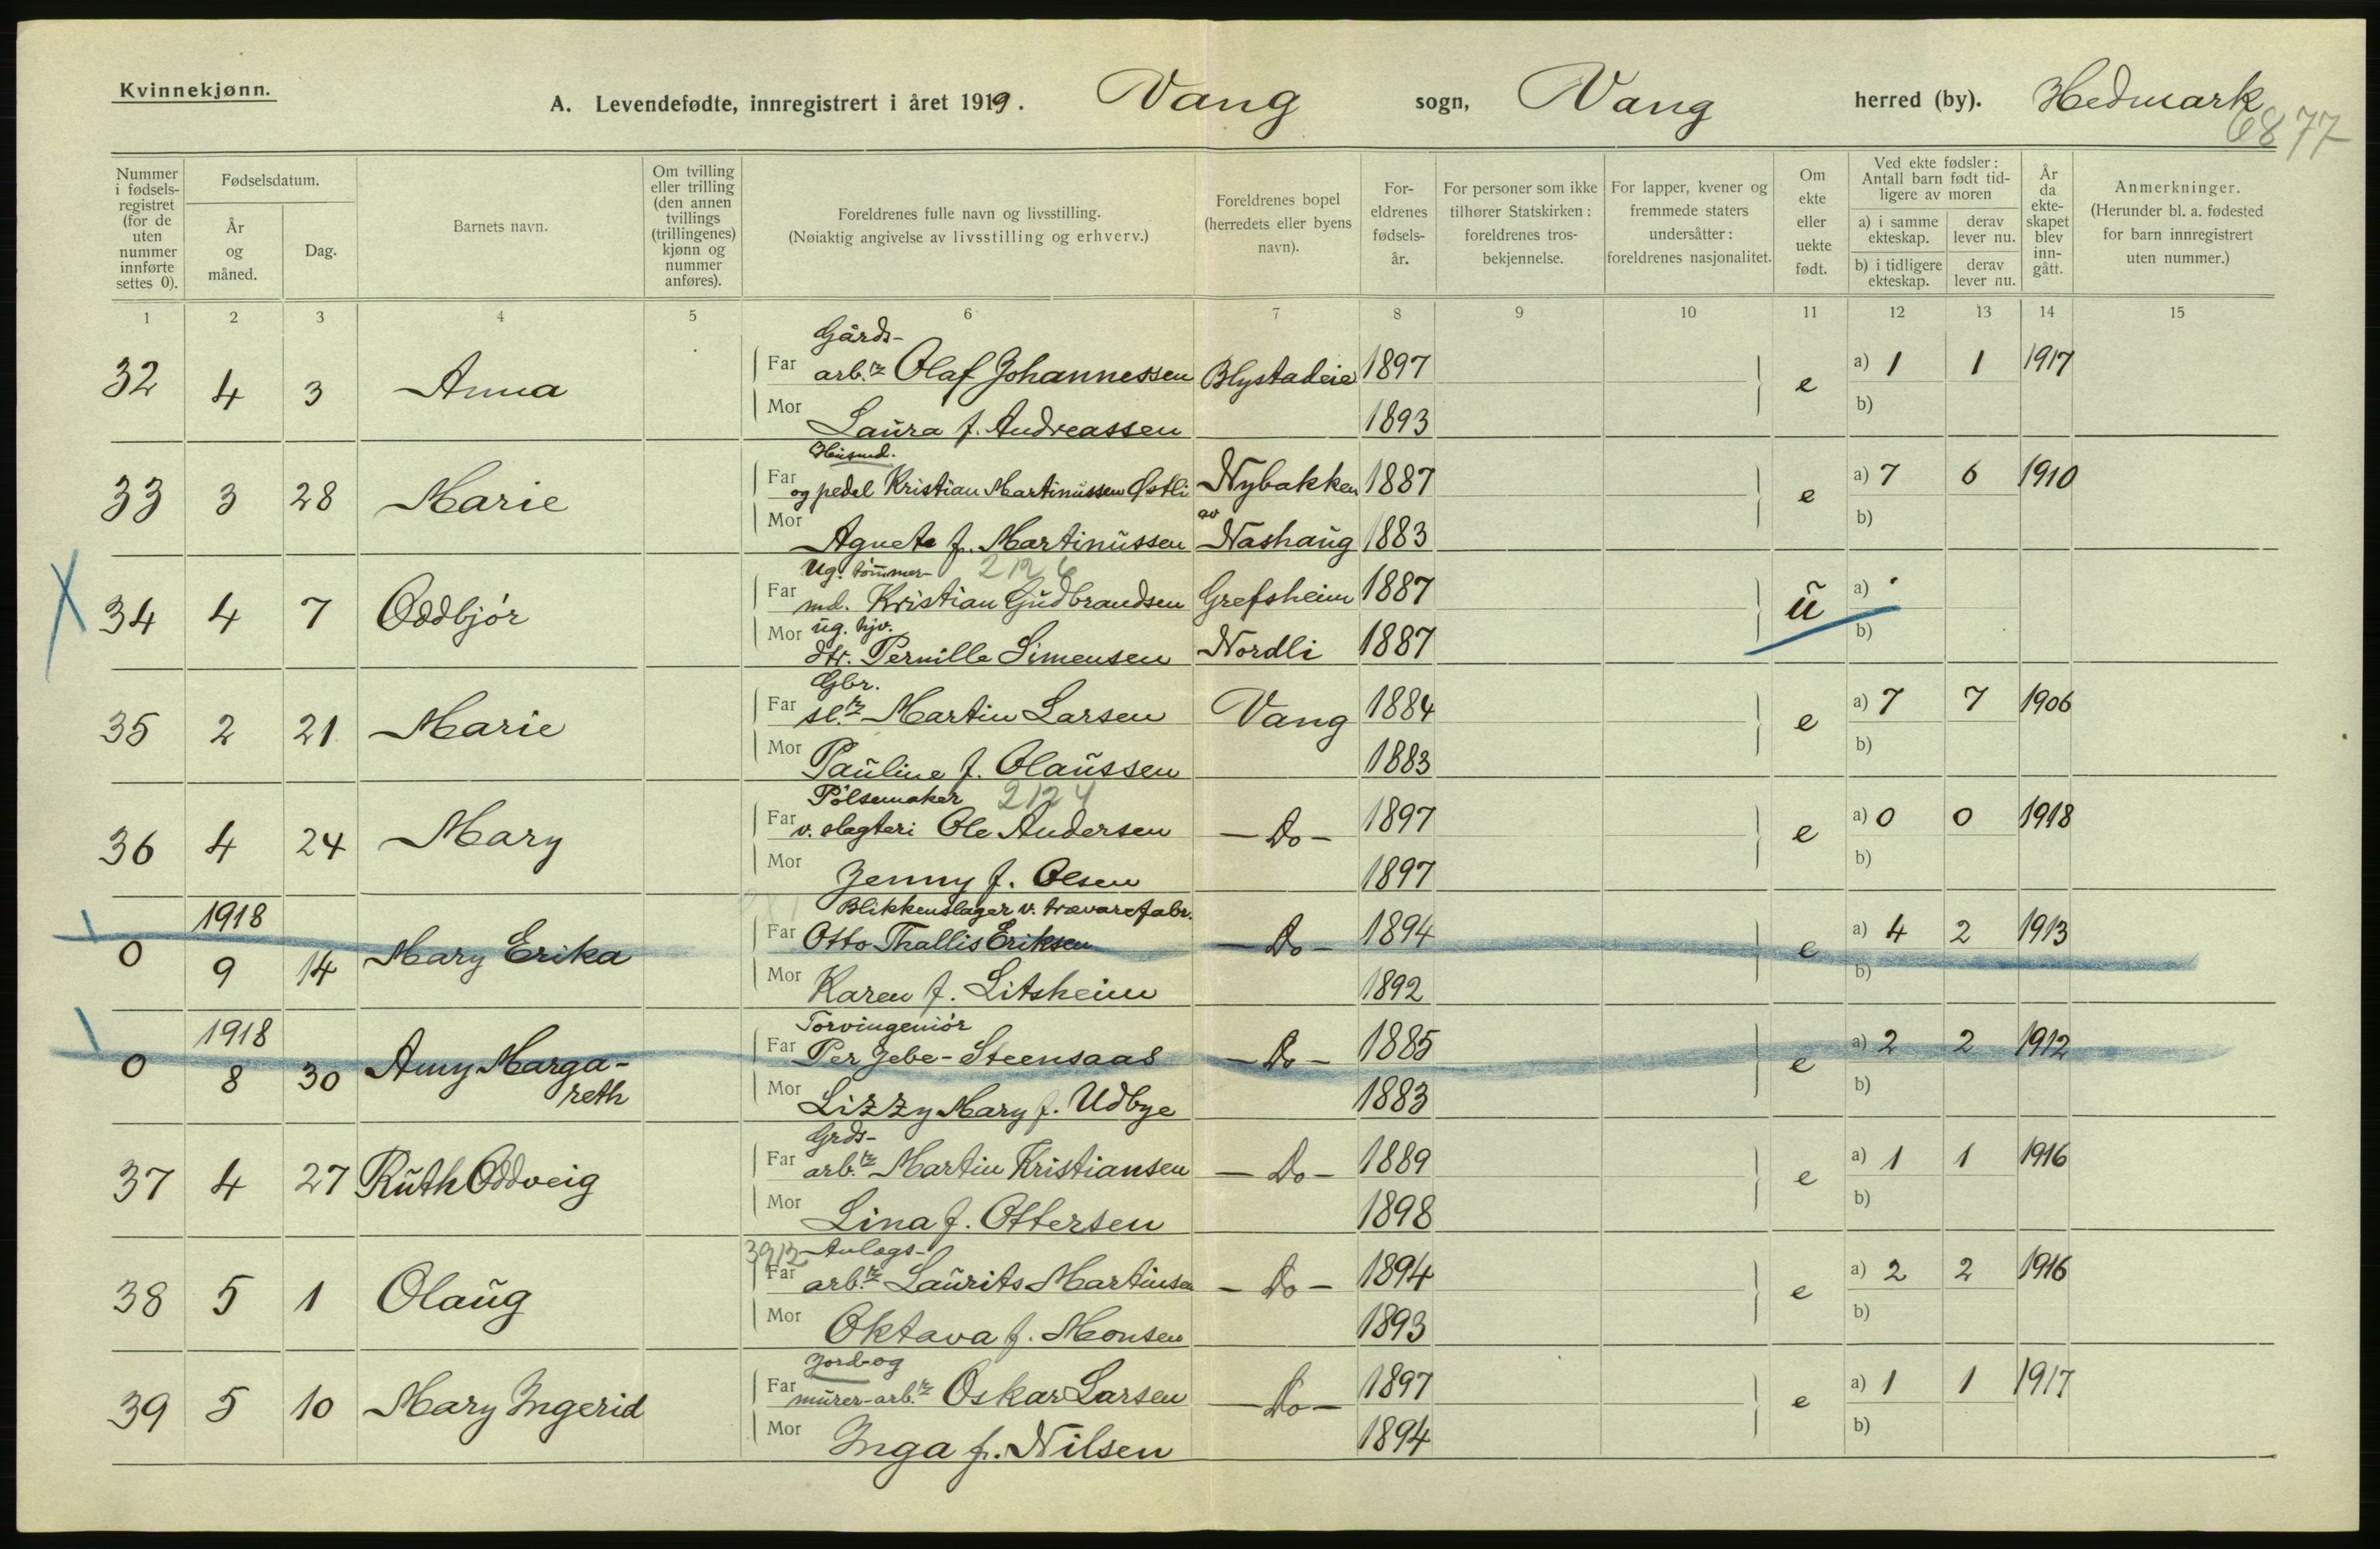 Kvinnekjønn.
A. Levendefødte, innregistrert i året 1919. Vang sogn, Vang herred (by). Hedmark
6877
Nummer i fødsels-registret (for de uten nummer innførte settes 0).
Fødselsdatum.
År og måned.
Dag.
Barnets navn.
Om tvilling eller trilling (den annen tvillings (trillingenes) kjønn og nummer anføres).
Foreldrenes fulle navn og livsstilling.
(Nøiaktig angivelse av livsstilling og erhverv.)
Foreldrenes bopel (herredets eller byens navn).
For-eldrenes fødsels-år.
For personer som ikke tilhører Statskirken: foreldrenes tros-bekjennelse.
For lapper, kvener og fremmede staters undersåtter: foreldrenes nasjonalitet.
Om ekte eller uekte født.
Ved ekte fødsler: Antall barn født tid-ligere av moren
a) i samme ekteskap.
derav lever nu.
b) i tidligere ekteskap.
derav lever nu.
År da ekte-skapet blev inn-gått.
Anmerkninger.
(Herunder bl. a. fødested for barn innregistrert uten nummer.)
1 2 3 4 5 6 7 8 9 10 11 12 13 14 15
Gårds-
32 4 3 Anna Far arb.r Olaf Johannessen Blystadeie 1897 e a) 1 1 1917
Mor Laura f. Andreassen 1893 b)
Husmd.
33 3 28 Marie Far og pedel Kristian Martinussen Østli Nybakken 1887 e a) 7 6 1910
Mor Agnete f. Martinussen av Nashaug 1883 b)
Ug. tømmer- 2126
34 4 7 Oddbjør Far md. Kristian Gudbrandsen Grefsheim 1887 u a)
Mor ug. hjv.
dtr. Pernille Simensen Nordli 1887 b)
Gbr.
35 2 21 Marie Far sl.r Martin Larsen Vang 1884 e a) 7 7 1906
Mor Pauline f. Olaussen 1883 b)
Pølsemaker 2124
36 4 24 Mary Far v. slagteri Ole Andersen - Do - 1897 e a) 0 0 1918
Mor Jenny f. Olsen 1897 b)
1918 Blikkenslager v. trævarefabr.
0 9 14 Mary Erika Far Otto Thallis Eriksen - Do - 1894 e a) 4 2 1913
Mor Karen f. Litsheim 1892 b)
1918 Torvingeniør
0 8 30 Amy Marga-reth Far Per Jebe-Steensaas - Do - 1885 e a) 2 2 1912
Mor Lizzy Mary f. Udbye 1883 b)
Grds-
37 4 27 Ruth Oddveig Far arb.r Martin Kristiansen - Do - 1889 e a) 1 1 1916
Mor Lina f. Ottersen 1898 b)
3912 Anlægs-
38 5 1 Olaug Far arb.r Laurits Martinsen - Do - 1894 e a) 2 2 1916
Mor Oktava f. Monsen 1893 b)
Jord-og
39 5 10 Mary Ingerid Far murer-arb.r Oskar Larsen - Do - 1897 e a) 1 1 1917
Mor Inga f. Nilsen 1894 b)